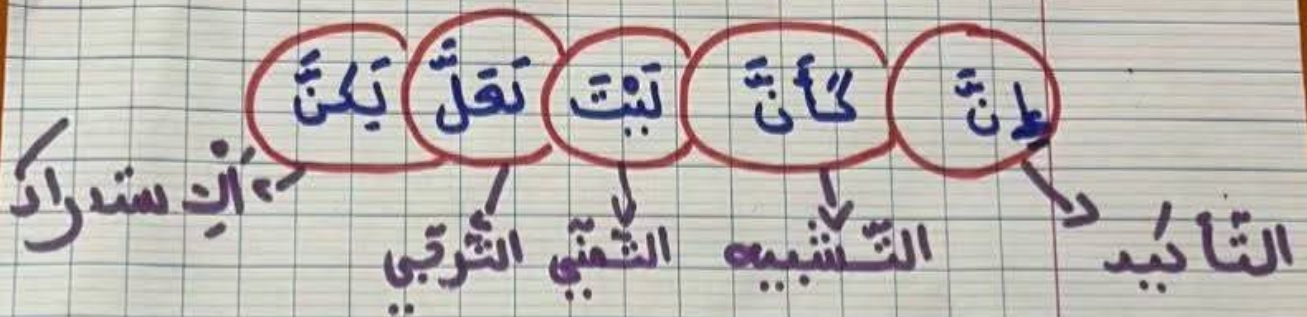 إِنَّ كَأَنَّ لَيْتَ لَعَلَّ لَكِنَّ
التَّأكيد التَّشبيه التَّمنّي التَّرجّي الْاِستدراك